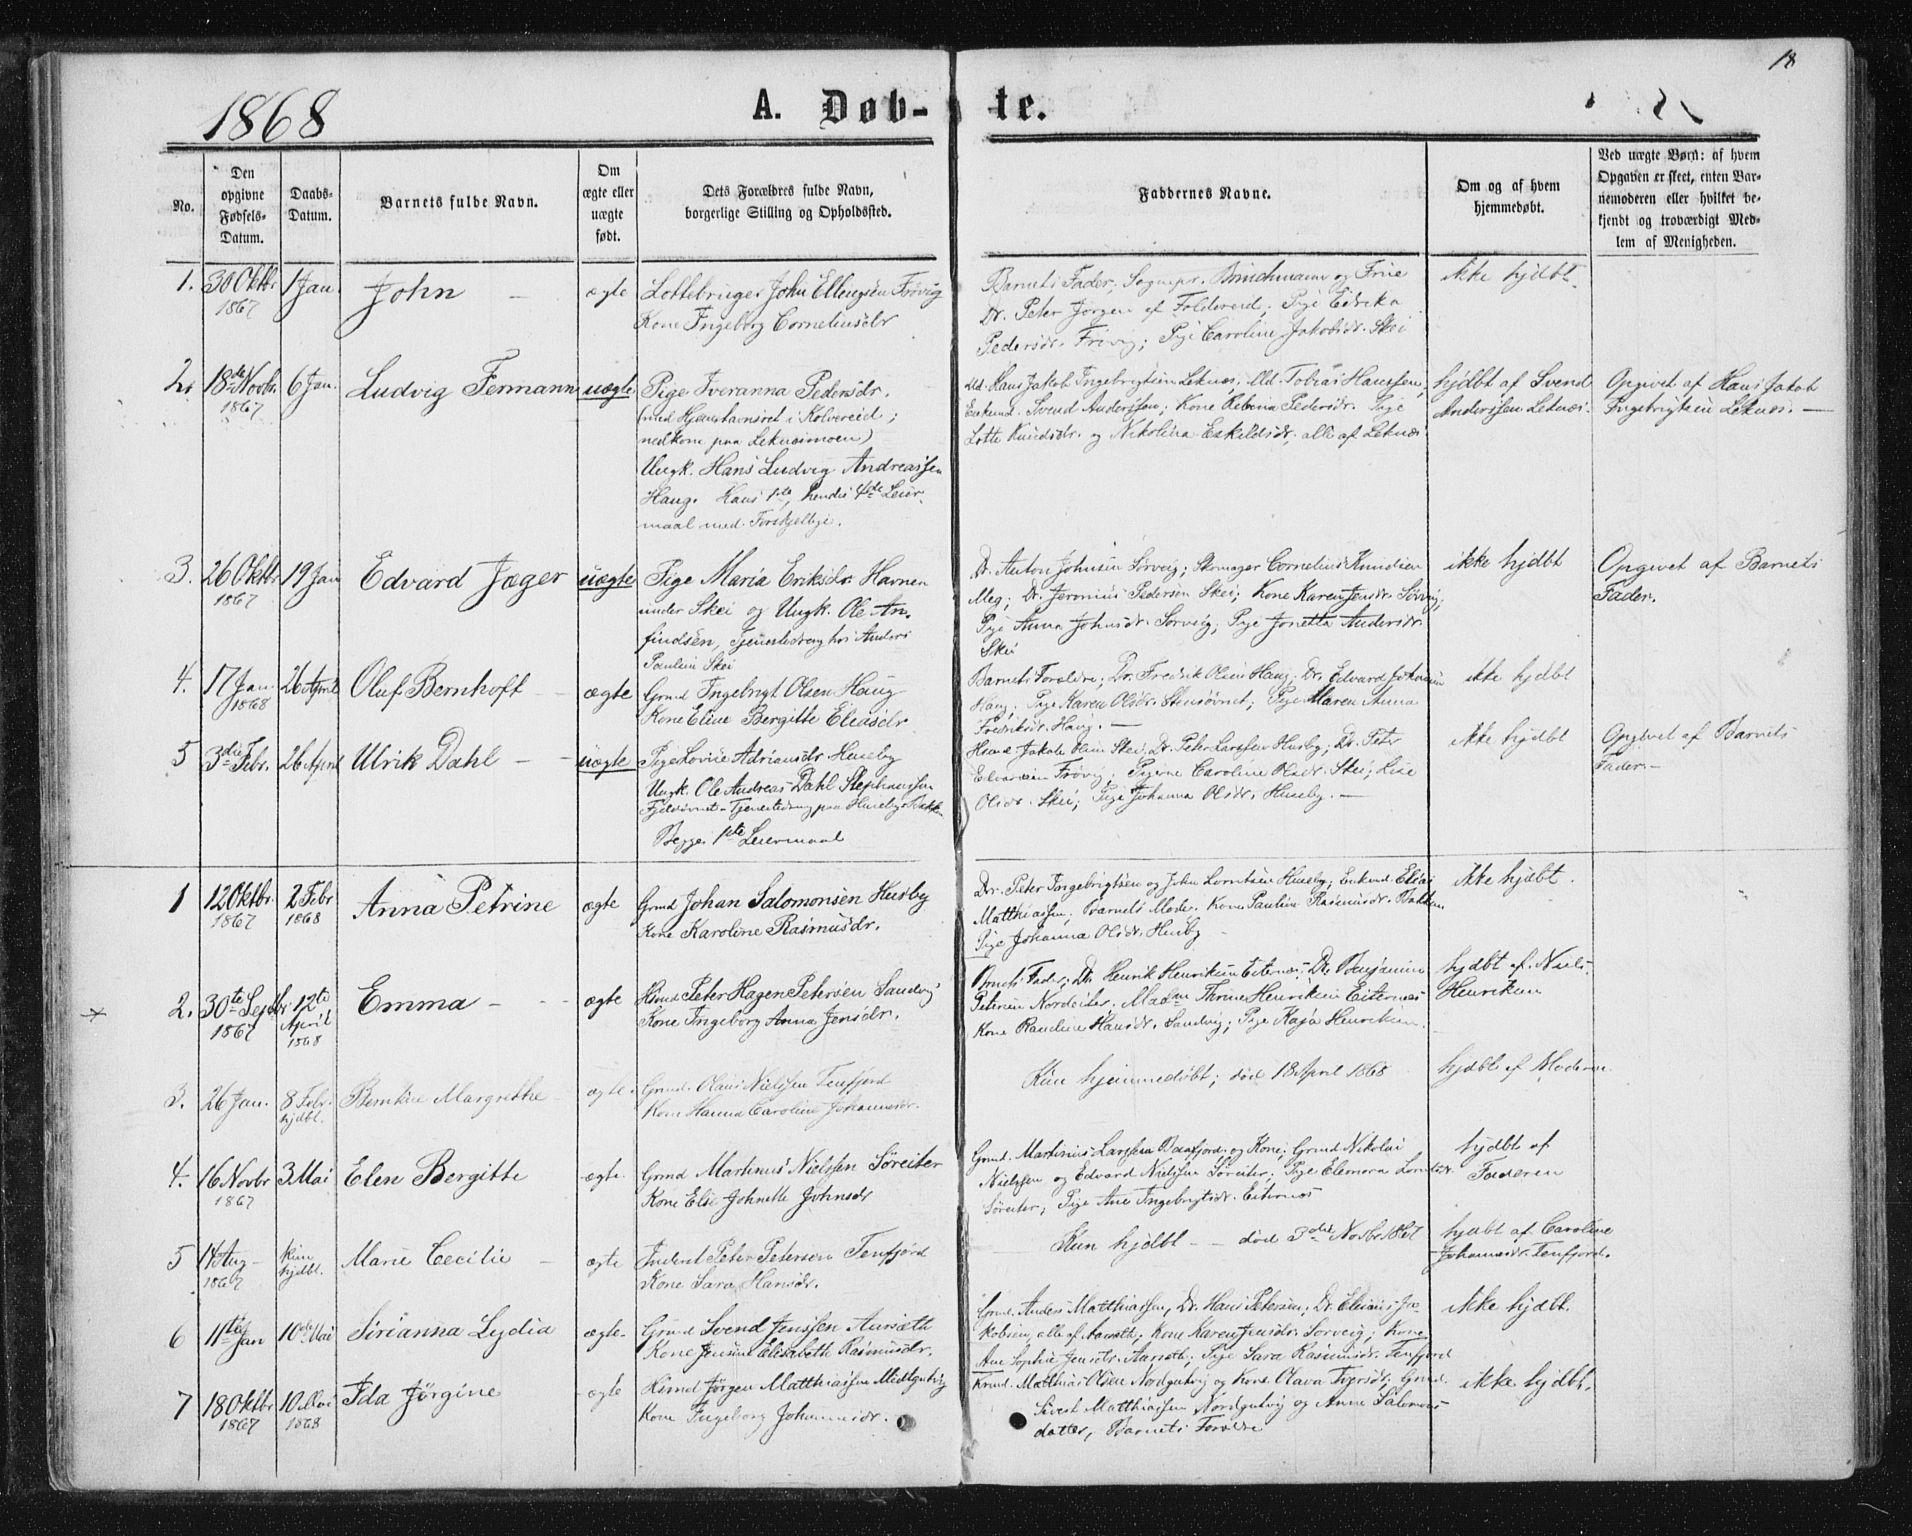 18
1868
A. Døb-te.
No.
Den opgivne Fødsels-Datum.
Daabs-Datum.
Barnets fulde Navn.
Om ægte eller uægte født.
Dets Forældres fulde Navn, borgerlige Stilling og Opholdssted.
Faddernes Navne.
Om og af hvem hjemmedøbt.
Ved uægte Børn: af hvem Opgaven er skeet, enten Barnemoderen eller hvilket bekjendt og troværdigt Medlem af Menigheden.
1. 30 Oktbr 1867 1 Jan. John ægte
John Ellingsen Frøvig
Kone Ingeborg Corneliusdr
Barnets Fader, Sognepr. Brinchmann og Frue
Dr. Peter Jørgen af Foldereid; Pige Edrika
Pedersdr. Frøvig; Pige Caroline Jakobsdr. Skei
ikke hjdbt.
2. 18de Novbr. 1867 6 Jan. Ludvig Fermann uægte
Pige Iveranna Pedersdr.
(med Hjemstavnsret i Kolvereid;
nedkom paa Leknesmoen)
Ungk. Hans Ludvig Andreassen
Haug. Hans 1ste, hendes 4de Leier-
maal med Forskjellige.
Hans Jakob Ingebrigtsen Leknes; Tobias Hanssen,
Enkemd. Svend Anderssen; Kone Pedersdr. Pige
Lotte Knudsdr. og Nikolina Eskildsdr. alle af Leknes
hjdbt af Svend
Anderssen Leknes.
Opgivet af Hans Jakob
Ingebrigtsen Leknes. —
3. 26 Oktbr 1867 19 Jan Edvard Jæger uægte
Pige Maria Eriksdr. Havnen
under Skei og Ungk. Ole An-
findsen, Tjenestedreng hos Anders
Paulsen Skei
Dr. Anton Johnsen Sørveig; Skomager Cornelius Knudsen
Meg; Dr. Jeronius Pedersen Skei; Kone Karen Jensdr. Sørvig;
Pige Anna Johnsdr. Sørveig; Pige Jonetta Andersdr.
Skei
ikke hjdbt
Opgivet af Barnets
Fader.
4. 17 Jan 1868 26 April Oluf Bernhoft ægte
Grmd Ingebrigt Olsen Haug
Kone Eline Bergitte Eliasdr
Barnets Forældre; Dr. Fredrik Olsen Haug; Dr. Edvard Johnsen
Haug; Pige Karen Olsdr. Stensøvnet; Pige Maren Anna
Fredriksdr. Haug. —
ikke hjdbt
5 3die Febr. 26 April Ulrik Dahl uægte
Pige Lovise Adriansdr Huseby
Ungk. Ole Andreas Dahl Stephanssen
Fjeldsøvnet - Tjenestedreng paa Huseby
Begge 1ste Leiermaal
Jakob Olsen Skei, Dr. Peter Larssen Husby; Dr. Peter
Edvardsen Frøvig; Pigerne Caroline Olsdr. Skei; Lise
Olsdr. Skei; Pige Johanna Olsdr. Huseby. —
ikke hjdbt
Opgivet af Barnets
Fader. —
1 12 Oktbr. 1867 2 Febr 1868 Anna Petrine ægte
Grmd Johan Salomonsen Husby
Kone Karoline Rasmusdr.
Dr. Peter Ingebrigtsen og John Lorntsen Huseby; Enkemd. Elias
Matthiassen; Barnets Moder. Kone Pauline Rasmusdr. Bakken
Pige Johanna Olsdr. Husby
ikke hjdbt.
2. 30te Septbr 1867 12te April 1868 Emma ægte
Peter Hagen Petersen Sandvig
Kone Ingeborg Anna Jensdr.
Barnets Fader; Dr. Henrik Henriksen Eiternes; Dr. Benjamin
Petersen Nordeiter. Madm Thrine Henriksen Eiternes
Kone Pauline Hansdr. Sandvig; Pige Kaja Henriksen.
hjdbt af Niels
Henriksen
3. 26 Jan. 8 Febr. hjdbt. Berntine Margrethe ægte
Grmd. Olaus Nielssen Tenfjord
Kone Hanna Caroline Johannesdr.
Kun hjemmedøbt; død 18 April 1868
hjdbt af Moderen
4. 16 Novbr 1867 3 Mai Elen Bergitte ægte
Grmd Martinus Nielssen Søreiter
Kone Else Johnette Johnsdr
Grmd. Martinus Larssen og Kone; Grmd Nikolai
Nielssen og Edvard Nielssen Søreiter; Pige Elenora
Søreiter; Pige Ane Ingebrigtsdr. Eiternes
hjdbt af
Faderen
5 14 Aug 1867 kun hjdbt. Marie Cecilie ægte
Inderst Peter Petersen Tenfjord
Kone Sara Hansdr.
Kun hjdbt — død 3die Novbr. 1867
hjdbt af Caroline
Johannesdr. Tenfjord.
6 11te Jan 10de Mai Sirianna Lydia ægte
Grmd Svend Jenssen Aunæth
Kone Jensine Elisabeth Rasmusdr.
Grmd. Anders Matthiassen, Dr. Hans Petersen; Dr. Elenus Ja-
kobsen, alle af ; Kone Karen Jensdr. Sørveig; Kone
Ane Sophie Jensdr. ; Pige Sara Rasmusdr. Tenfjord
ikke hjdbt.
7 18 Oktbr 1867 10 Mai 1868 Ida Jørgine ægte
Jørgen Matthiassen Midtgutvig
Kone Ingeborg Johannesdr.
Grmd. Matthias Olsen Nordgutvig og Kone Olava Iversdr; Grmd.
Sivert Matthiassen Nordgutvig og Anne Salomons
datter, Barnets Forældre
ikke hjdbt.